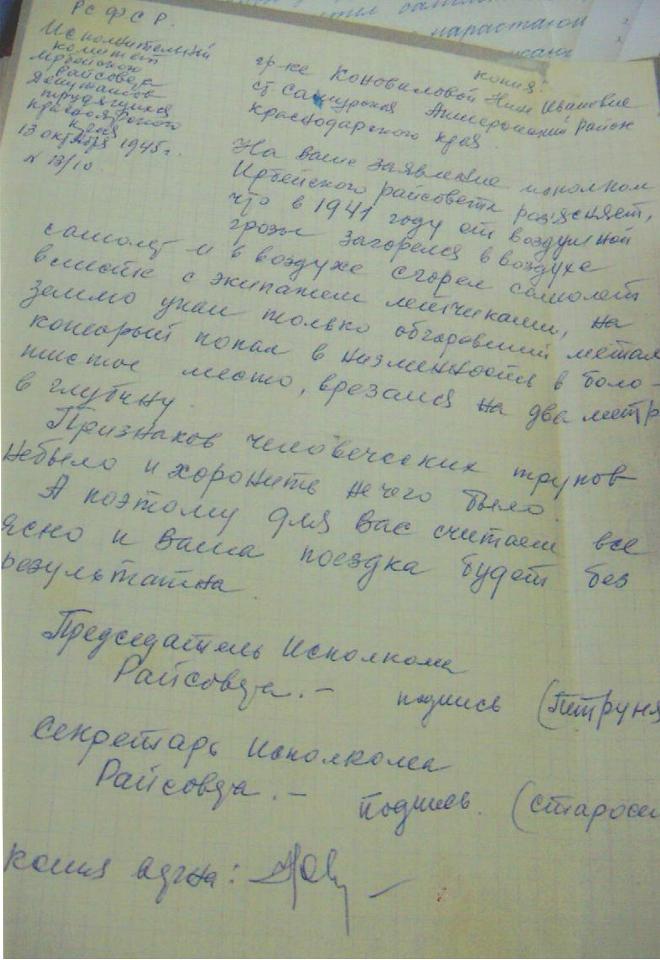 РСФСР.
Исполнительный
комитет
Ирбейского
райсовета
депутатов
трудящихся
Красноярского
края
13 октября 1945 г.
N 13/10
копия.
гр-ке Коноваловой Нине Ивановне
ст Самурская Апшеронский район
Краснодарского края
На ваше заявление исполком
Ирбейского райсовета разъясняет,
что в 1941 году от воздушной
грозы загорелся в воздухе
самолет и в воздухе сгорел самолет
вместе с экипажем летчиками, на
землю упал только обгоревший метал
который попал в низменность в боло-
тистое место, врезался на два метр
в глубину.
Признаков человеческих трупов
небыло и хоронить нечего было.
А поэтому для Вас считаем все
ясно и Ваша поездка будет без
результатна.
Председатель Исполкома
Райсовета. – подпись (Петруня
Секретарь Исполкома
Райсовета. – подпись. (Старосе
копия верна: